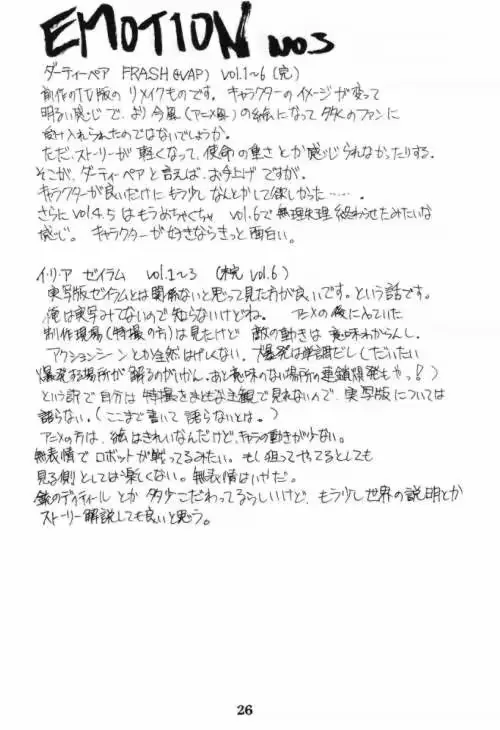 EMOTION NO.3
ダーティーペア FRASH (VAP) vol.1~6 (完)
前作のTV版のリメイクものです。キャラクターのイメージが変って
明るい感じで、より今風(アニメ風)の絵になって多くのファンに
向け入れられたのではないでしょうか。
ただ、ストーリーが軽くなって、使命の重さとか感じられなかったりする。
そこが、ダーティーペアと言えば、お手上げですが。
キャラクターが良いだけにもう少しなんとかして欲しかった……。
さらにvol.4.5はもうめちゃくちゃ vol.6で無理矢理終わらせたみたいな
感じ。キャラクターが好きならきっと面白い。
イ・リ・ア ゼイラム vol.1~3 (続 vol.6)
実写版ゼイラムとは関係ないと思って見た方が良いです。という話です。
俺は実写みてないので知らないけどね。アニメの後に入っていた
制作現場(特撮の方)は見たけど 敵の動きは意味わからんし、
アクションシーンとか全然はげしくない、爆発は単調だし(だいたい
爆発する場所が解るのがいかん。あと意味のない場所の連鎖爆発もやっ!)
という訳で自分は特撮をまともな主観で見れないので、実写版については
語らない。(ここまで書いて語らないとは。)
アニメの方は、絵はきれいなんだけど、キャラの動きが少ない。
無表情でロボットが喋ってるみたい。もし狙ってやってるとしても
見る側としては楽しくない。無表情はいやだ。
銃のディティールとか多少こだわってるらしいけど、もう少し世界の説明とか
ストーリー解説しても良いと思う。
26